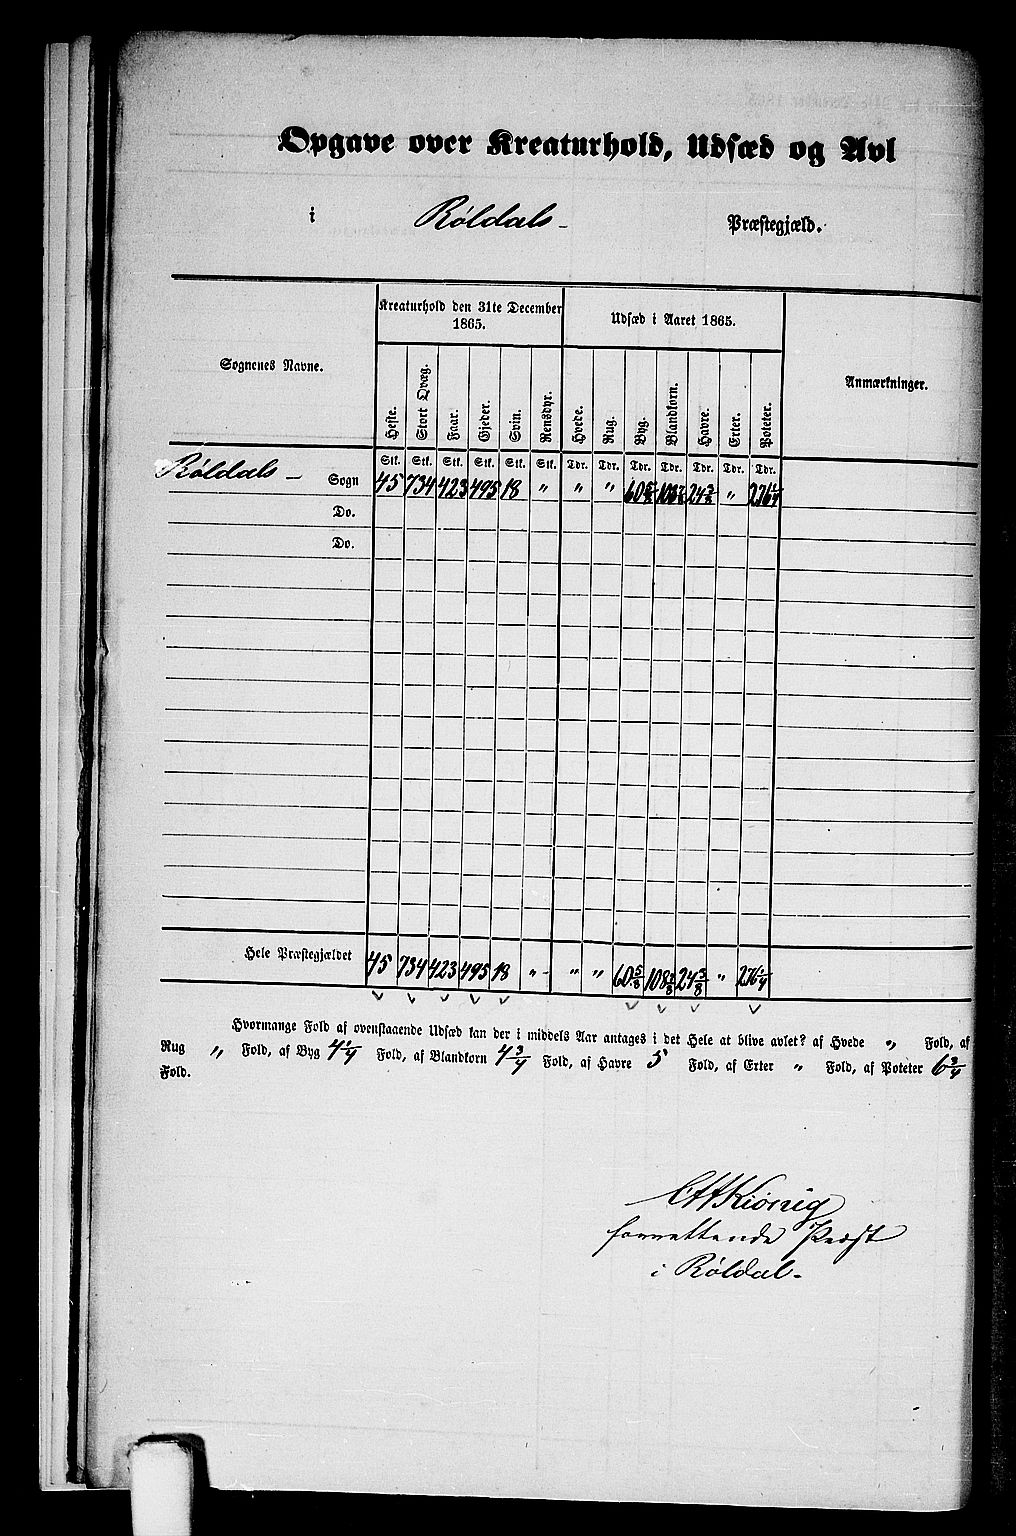 Opgave over Kreaturhold, Udsæd og Avl
i Røldals Præstegjæld.
Sognenes Navne.
Kreaturhold den 31te December 1865.
Udsæd i Aaret 1865.
Anmærkninger.
Heste. Stort Qvæg. Faar. Gjeder. Svin. Rensdyr. Hvede. Rug. Byg. Blandkorn. Havre. Erter. Poteter.
Stk. Stk. Stk. Stk. Stk. Stk. Tdr. Tdr. Tdr. Tdr. Tdr. Tdr. Tdr.
Røldals – Sogn 45 734 423 495 18 " " " 60 5/8 108 3/8 24 3/8 " 276 1/4
Do.
Do.
Hele Præstegjældet 45 734 423 495 18 " " " 60 5/8 108 3/8 24 3/8 " 276 1/4
Hvormange Fold af ovenstaaende Udsæd kan der i middels Aar antages i det Hele at blive avlet? af Hvede " Fold, af
Rug " Fold, af Byg 4 1/4 Fold, af Blandkorn 4 3/4 Fold, af Havre 5 Fold, af Erter " Fold, af Poteter 6 3/4
Fold.
forrettende Præst
i Røldal.